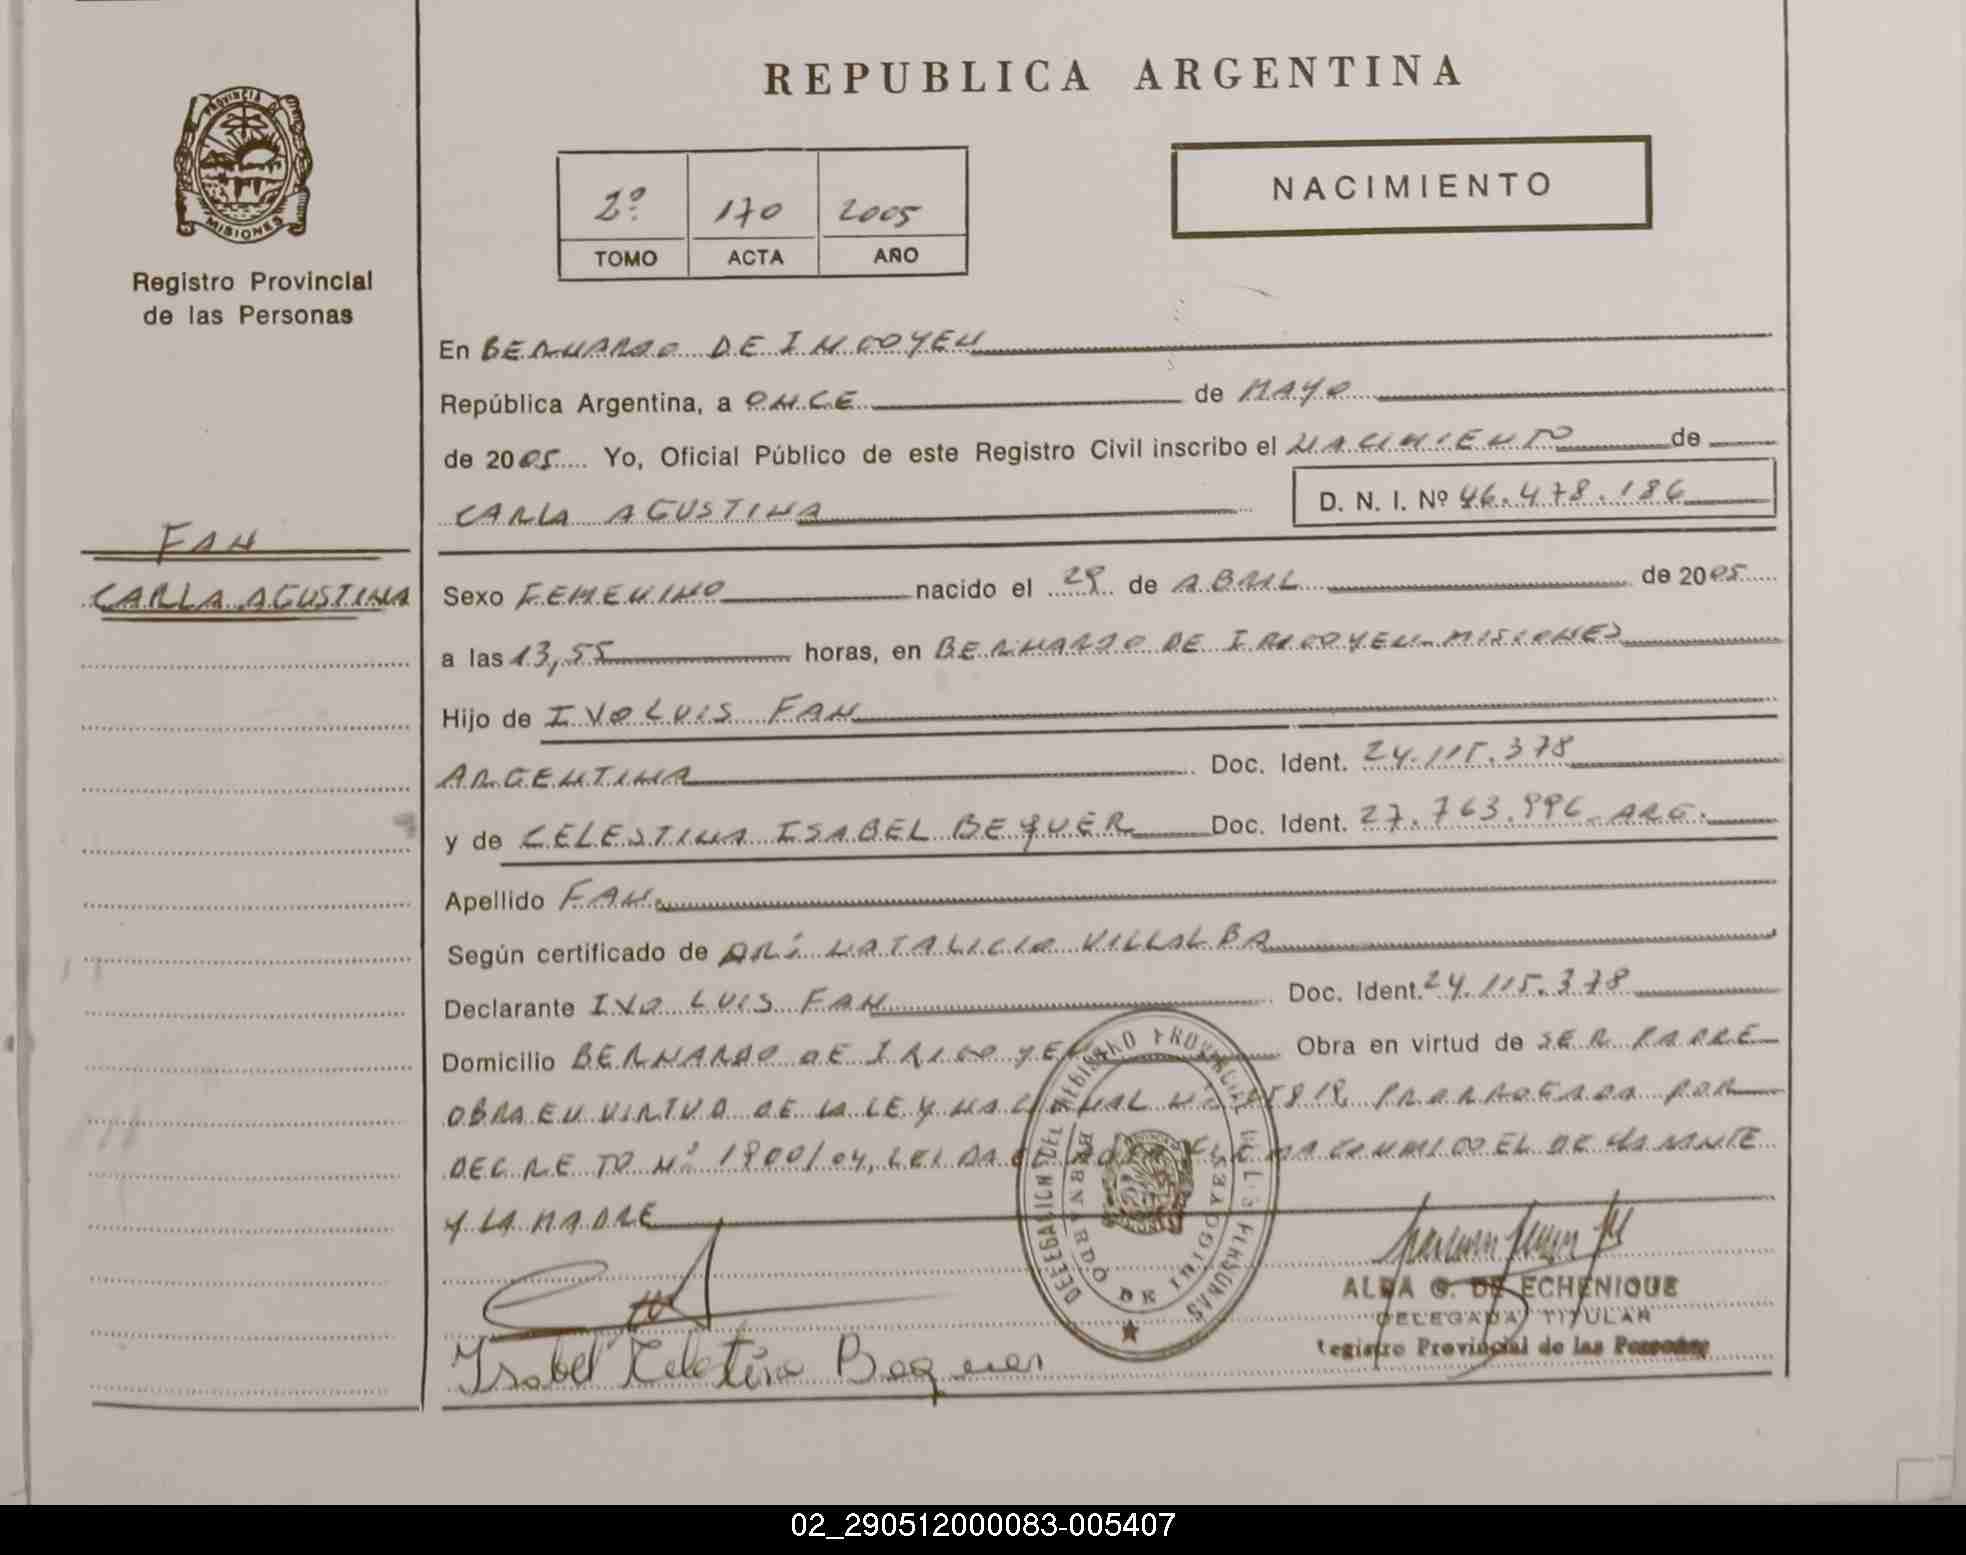 REPUBLICA ARGENTINA
PROVINCIA DE MISIONES
Registro Provincial
de las Personas
2º 170 2005
TOMO ACTA AÑO
NACIMIENTO
En BERNARDO DE IRIGOYEN
República Argentina, a ONCE de MAYO
de 2005 Yo, Oficial Público de este Registro Civil inscribo el NACIMIENTO de
CARLA AGUSTINA D. N. I. Nº 46.478.186
FAN
CARLA AGUSTINA
Sexo FEMENINO nacido el 29 de ABRIL de 2005
a las 13,55 horas, en BERNARDO DE IRIGOYEN-MISIONES
Hijo de IVO LUIS FAN
ARGENTINA Doc. Ident. 24.115.378
y de CELESTINA ISABEL BEQUER Doc. Ident. 27.763.996-ARG.
Apellido FAN
Según certificado de NATALICIO VILLALBA
Declarante IVO LUIS FAN Doc. Ident. 24.115.378
Domicilio BERNARDO DE IRIGOYEN Obra en virtud de SER PADRE
OBRA EN VIRTUD DE LA LEY NACIONAL Nº PRORROGADA POR
DECRETO Nº 1900/04, LEIDA EL ACTA FIRMA CONMIGO EL DECLARANTE
Y LA MADRE
DELEGACION DEL REGISTRO PROVINCIAL DE LAS PERSONAS
BERNARDO DE IRIGOYEN
ALBA G. DE ECHENIQUE
DELEGADA TITULAR
Registro Provincial de las Personas
Isabel Celetina Bequer
02_290512000083-005407